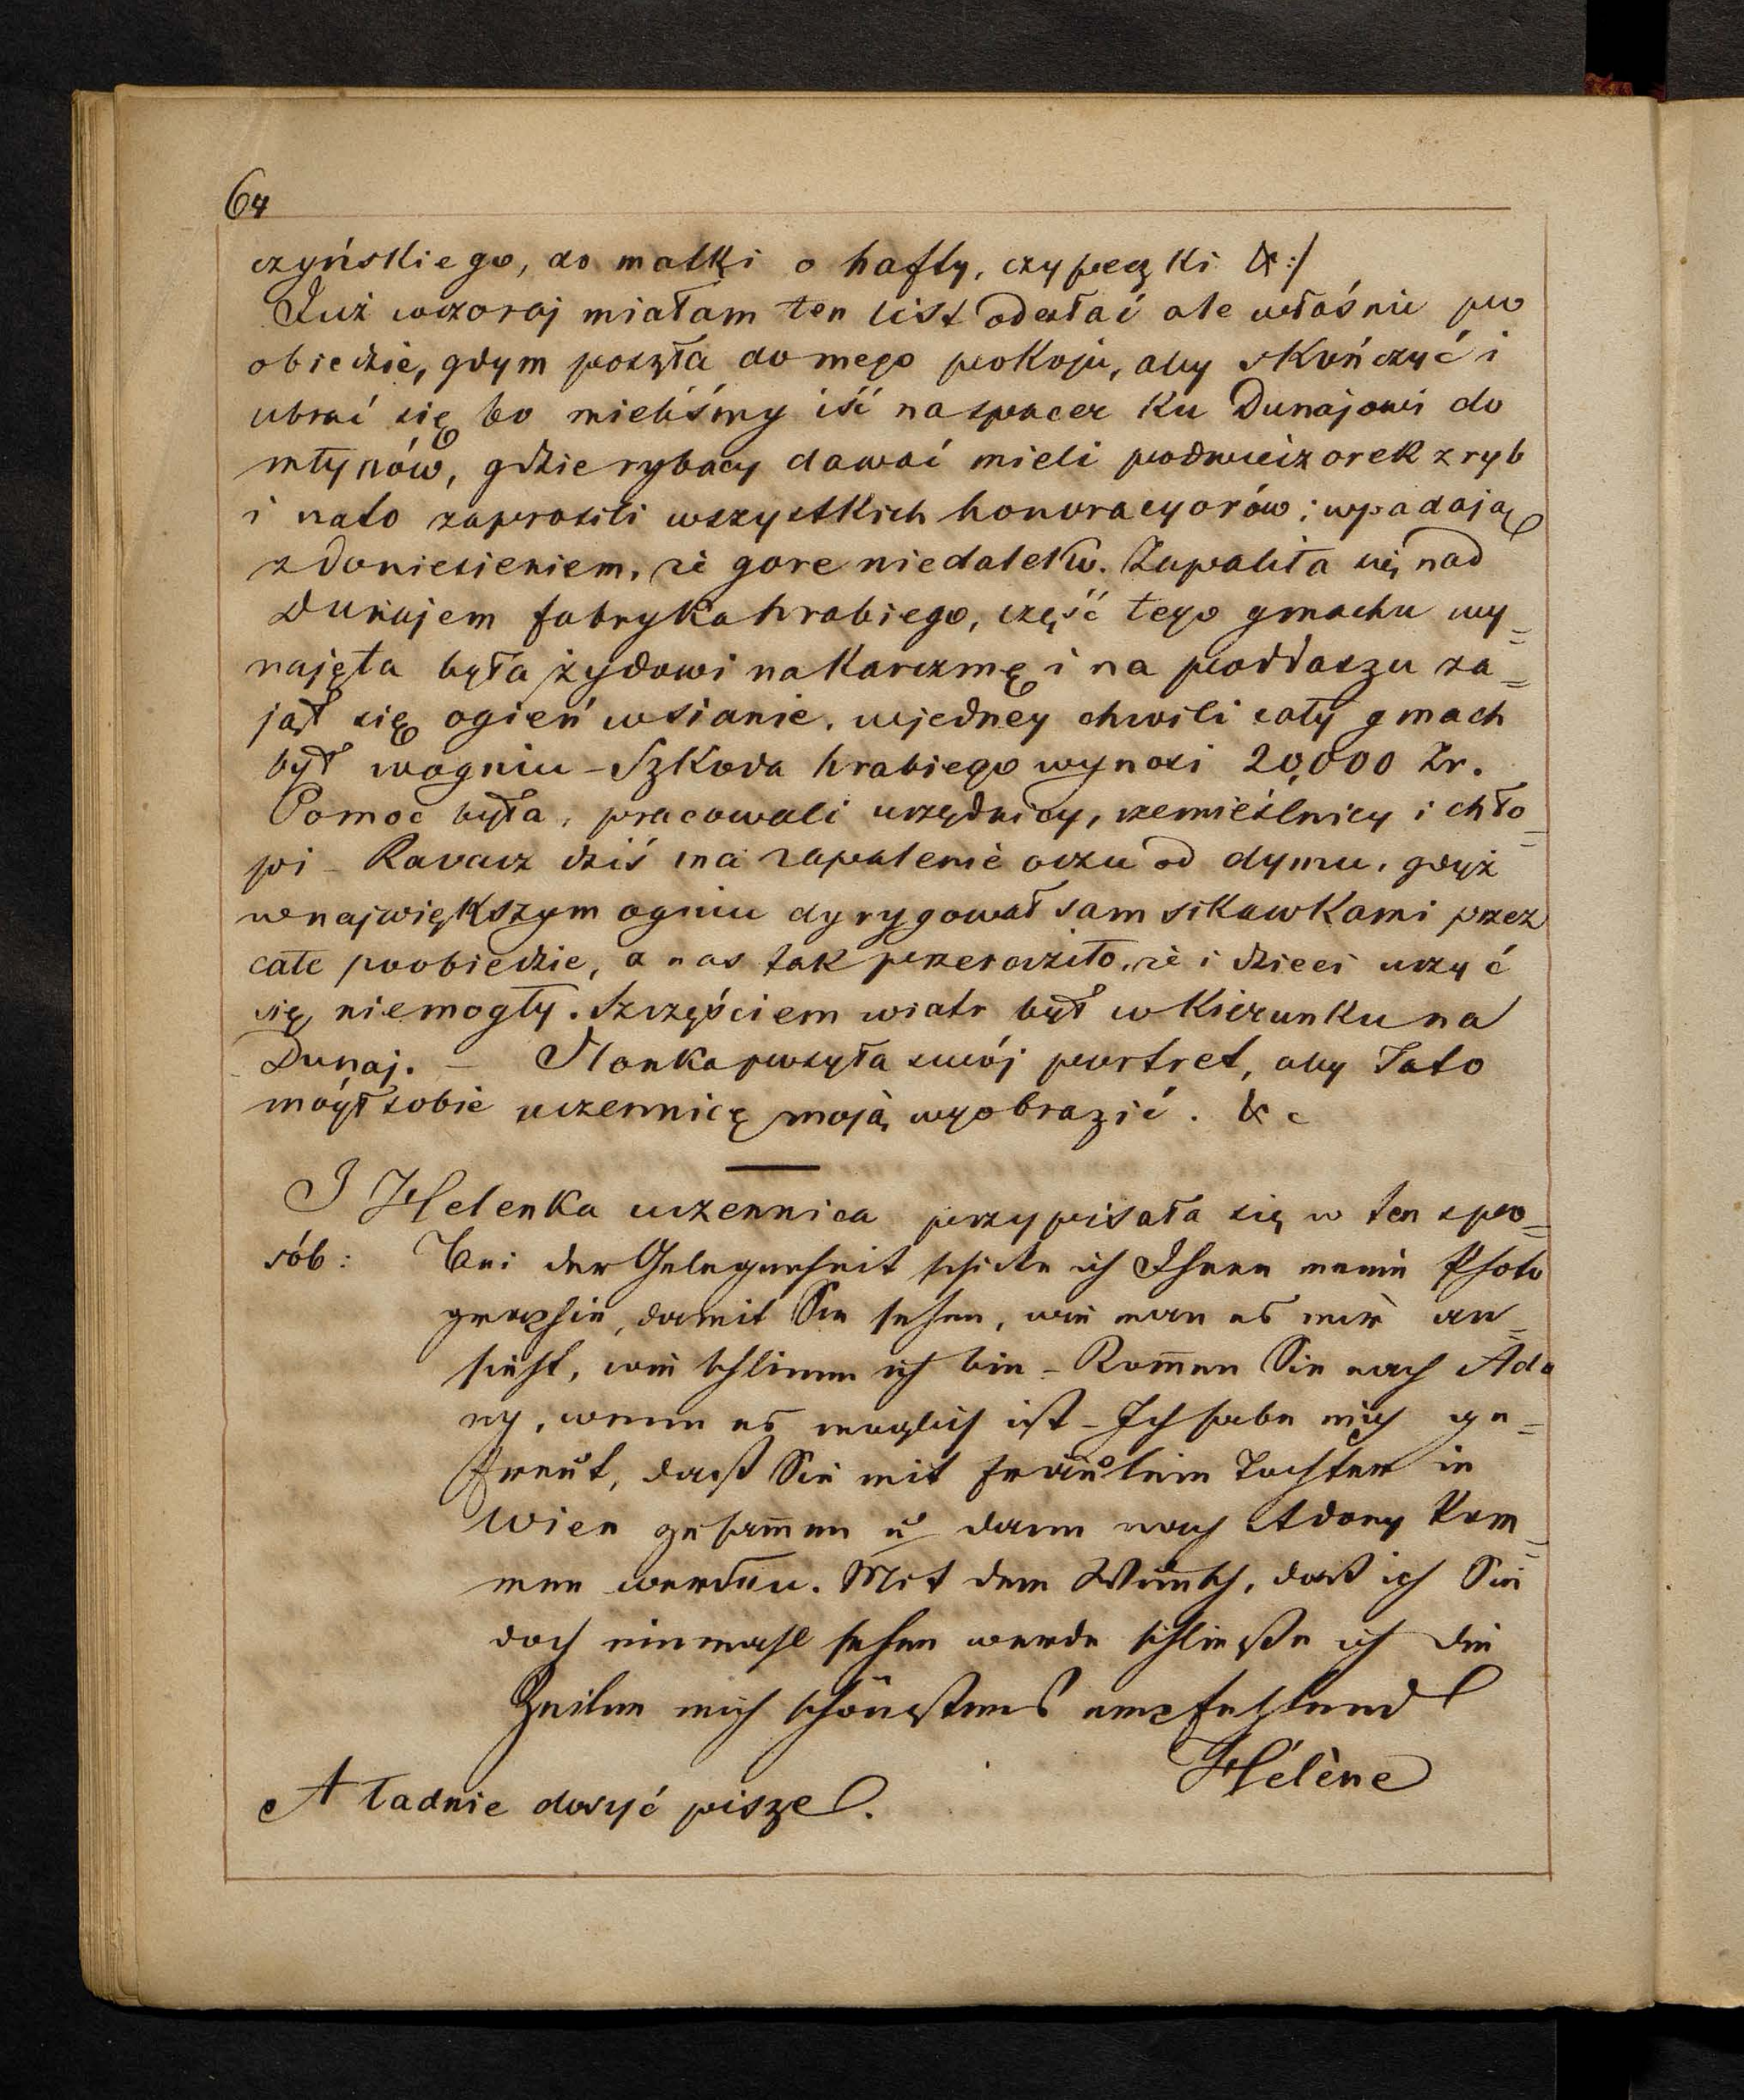 64
czyńskiego, do matki o hafty, czypeczki &:/
Już wczoraj miałam ten list odesłać ale właśnie po
obiedzie, gdym poszła do mego pokoju, aby skończyć i
ubrać się bo mieliśmy iść na spacer ku Dunajowi do
młynów, gdzie rybacy dawać mieli podwieczorek z ryb
i nato zaprosili wszystkich honoracyorów; wpadają
z doniesieniem, że gore niedaleko. Zapaliła się nad
Dunajem fabryka hrabiego, część tego gmachu wy=
najęta była żydowi na karczmę i na poddaszu za=
jął się ogień w sianie, w jedney chwili cały gmach
był w ogniu – Szkoda hrabiego wynosi 20,000 Zr.
Pomoc była, pracowali urzędnicy, rzemieślnicy i chło=
pi – Kavacz dziś ma zapalenie oczu od dymu, gdyż
w największym ogniu dyrygował sam sikawkami przez
całe poobiedzie, a nas tak przeraziło, że i dzieci uczyć
się niemogły. Szczęściem wiatr był w kierunku na
Dunaj. – Ilonka posyła swój portret, aby Tato
mógł sobie uczennicę moją wyobrazić. & c
I Helenka uczennica przypisała się w ten spo=
sób: Bei der Gelegenheit schicke ich Ihnen meine Photo
graphie, damit Sie sehen, wie man es mir an=
sieht, wie schlimm ich bin – Kom̅en Sie nach Ado
ny, wenn es möglich ist – Ich habe mich ge=
freut, daß Sie mit Fräulein Tochter in
Wien zusam̅en u dann nach Adony kom=
men werden. Mit dem Wunsch, daß ich Sie
doch einmahl sehen werde schließe ich die
Zeilen mich schönstens empfehlend
Hélène
A ładnie dosyć pisze.